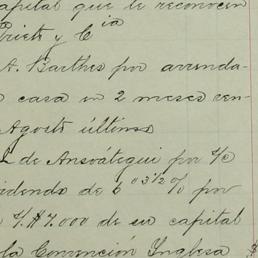 capital que le reconocen
Prieto y Cia
A. Barthes por arrenda-
casa en 2 meses ven-
Agosto último
de Ansoátegui por
videndo de 6 " 3 1/2 % por
$ 7.000 de su capital
la Convención Inglesa $